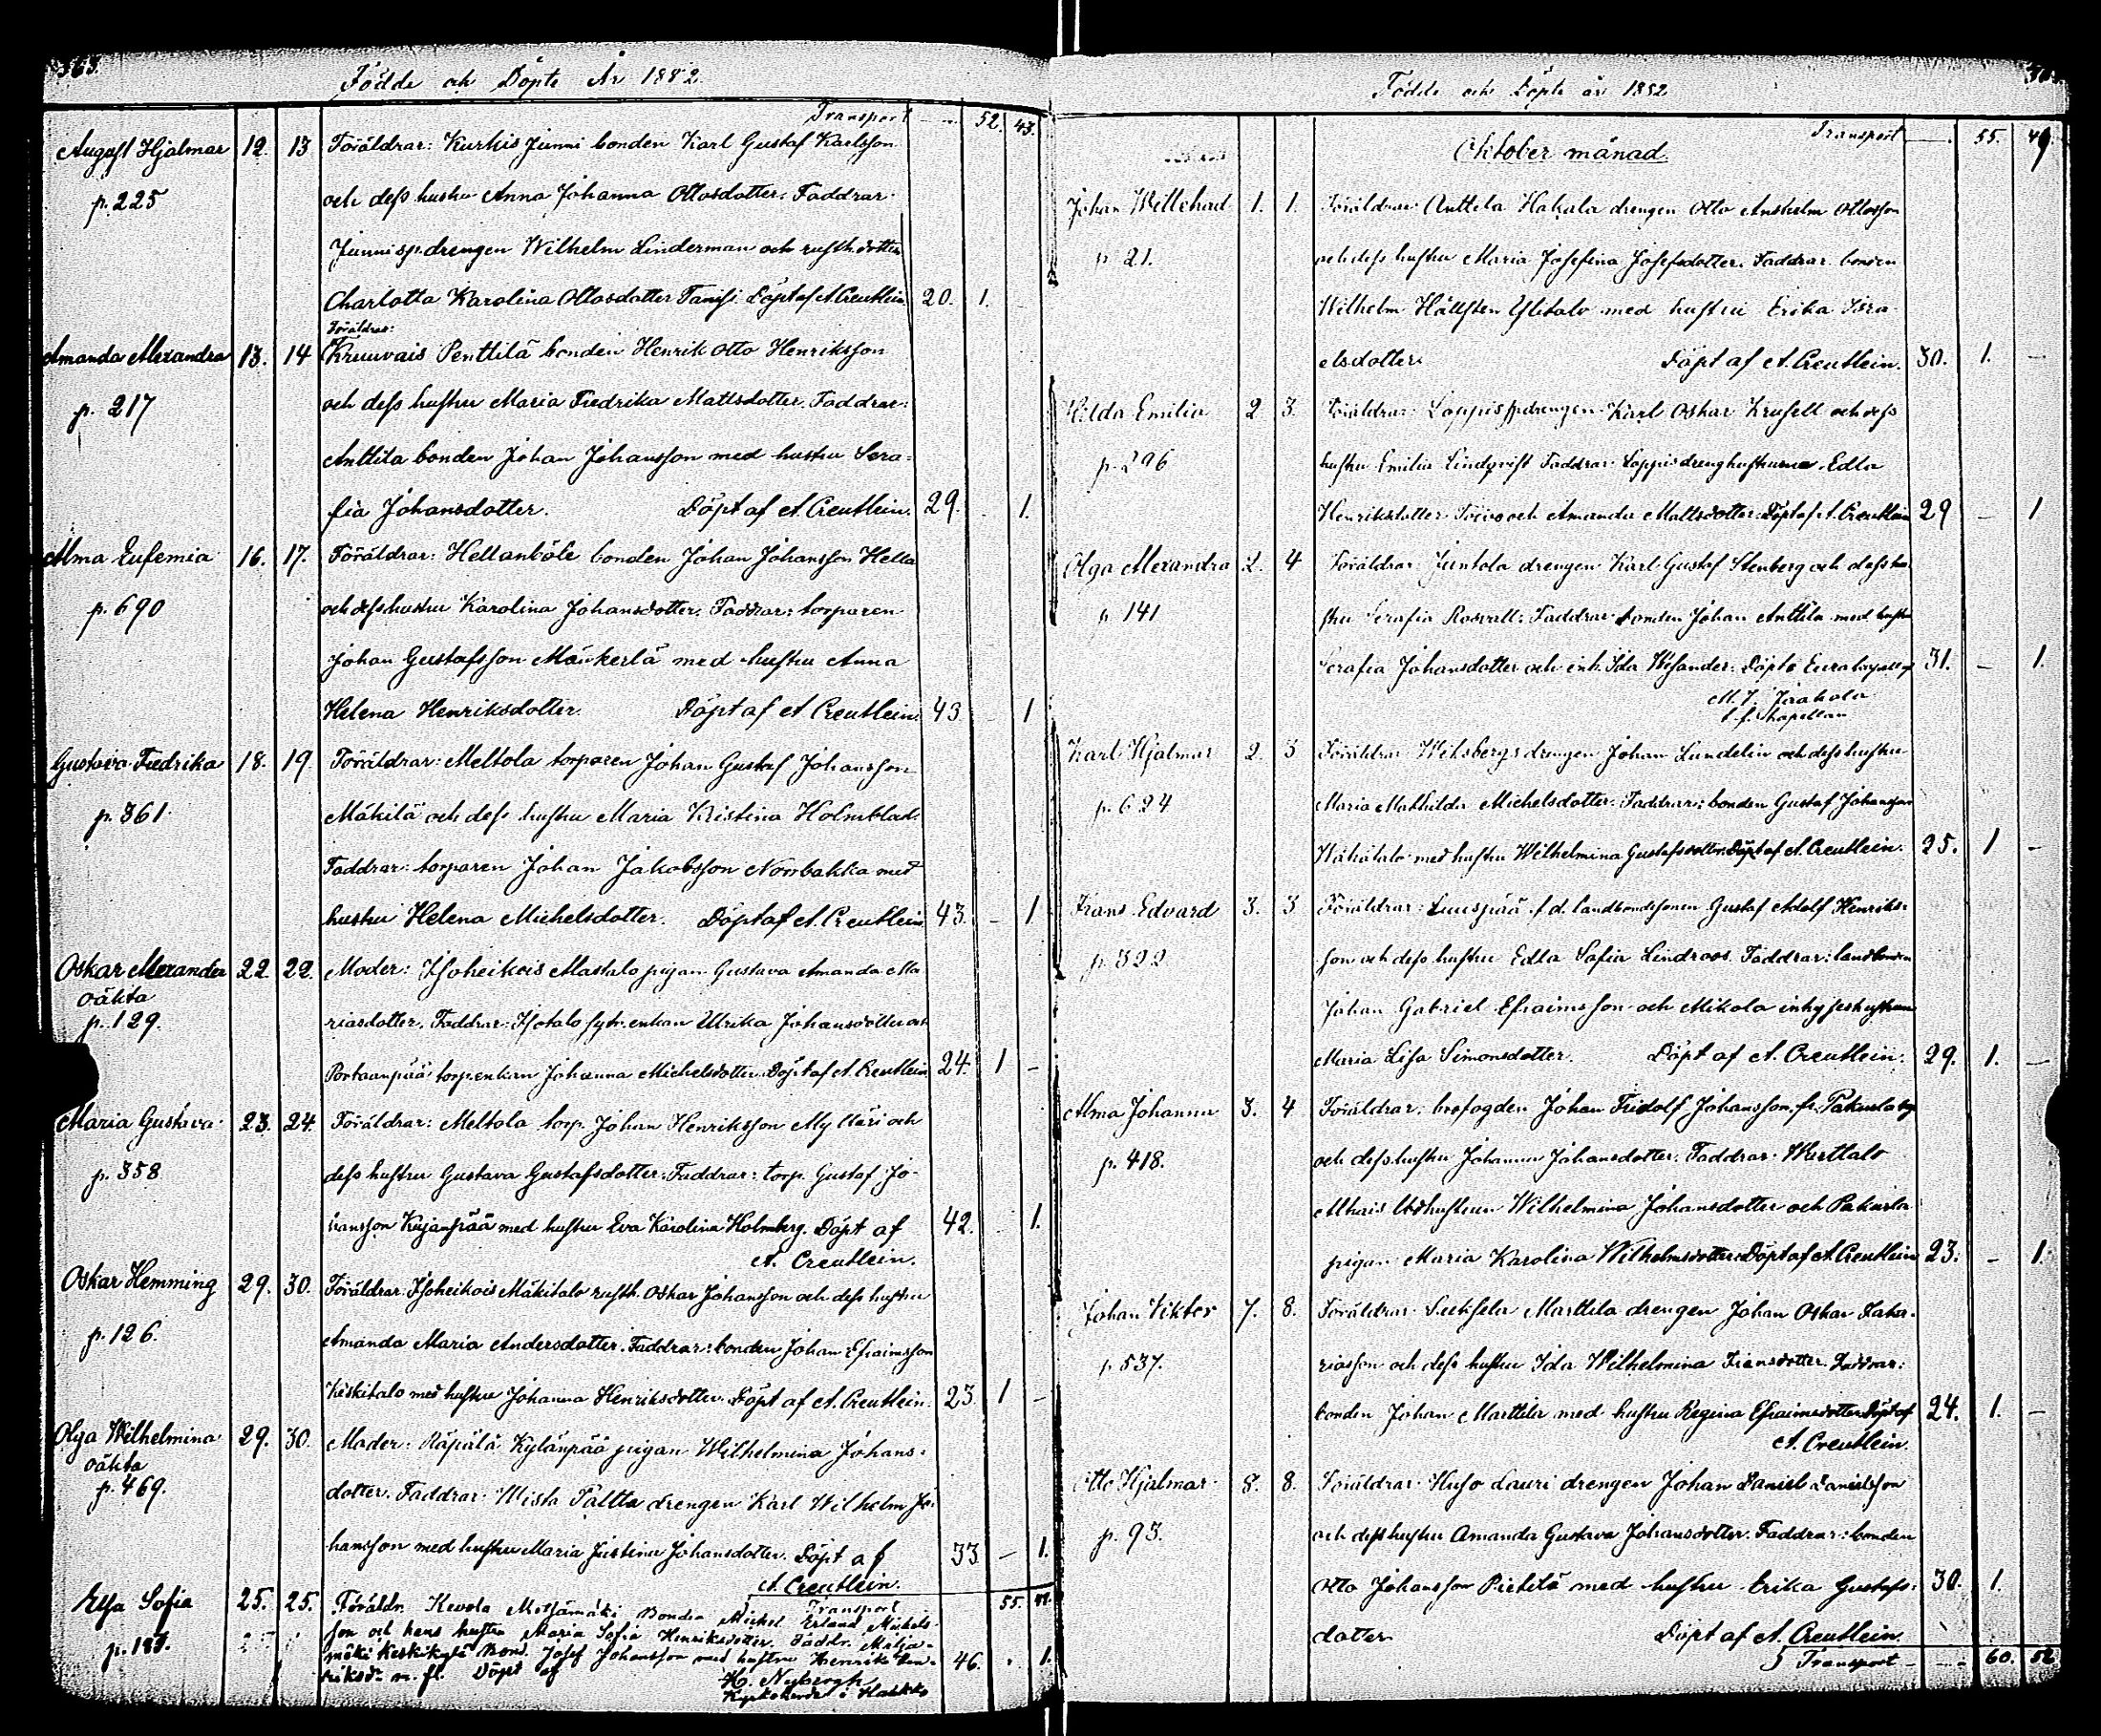 363.
Födde och Döpte År 1882.
Transport 52. 43.
August Hjalmar 12. 13 Föräldrar: Kurkis Junni bonden Karl Gustaf Karlsson
p. 225 och dess hustru Anna Johanna Ottosdotter. Faddrar
Junni sp.drengen Wilhelm Linderman och rusth.dotter
Charlotta Karolina Ottosdotter Tanisi. Döpt af A. Creutlein 20. 1.
Föräldrar:
Amanda Alexandra 13. 14 Kruuvais Penttilä bonden Henrik Otto Henriksson
p. 217 och dess hustru Maria Fredrika Mattsdotter. Faddrar:
Anttila bonden Johan Johansson med hustru Sera-
fia Johansdotter. Döpt af A. Creutlein. 29. 1.
Alma Eufemia 16. 17. Föräldrar: Hellanböle bonden Johan Johansson Hella
p. 690 och dess hustru Karolina Johansdotter. Faddrar: torparen
Johan Gustafsson Mäukerlä med hustru Anna
Helena Henriksdotter. Döpt af A. Creutlein. 43 1
Gustava Fredrika 18. 19. Föräldrar: Meltola torparen Johan Gustaf Johansson
p. 361. Mäkilä och dess hustru Maria Kristina Holmblad.
Faddrar: torparen Johan Jakobsson Norrbakka med
hustru Helena Michelsdotter. Döpt af A. Creutlein 43. – 1
Oskar Alexander 22 22. Moder: Isoheikois Mastalo pigan Gustava Amanda Ma-
oäkta
p. 129. riasdotter. Faddrar: Isotalo sytn.enkan Ulrika Johansdotter och
Portaanpää torp.enkan Johanna Michelsdotter. Döpt af A. Creutlein 24. 1 –
Maria Gustava 23. 24. Föräldrar: Meltola torp. Johan Henriksson Mylläri och
p. 358 dess hustru Gustava Gustafsdotter. Faddrar: torp. Gustaf Jo-
hansson Kujanpää med hustru Eva Karolina Holmberg. Döpt af 42. 1.
A. Creutlein.
Oskar Hemming 29. 30. Föräldrar: Isoheikois Mäkitalo rusth. Oskar Johansson och dess hustru
p. 126. Amanda Maria Andersdotter. Faddrar: bonden Johan Efraimsson
Keskitalo med hustru Johanna Henriksdotter. Döpt af A. Creutlein. 23 1 –
Olga Wilhelmina 29. 30. Moder: Räpälä Kylänpää pigan Wilhelmina Johans-
oäkta
p. 469. dotter. Faddrar: Mista Paltta drengen Karl Wilhelm Jo-
hansson med hustru Maria Justina Johansdotter. Döpt af 33 – 1.
A. Creutlein.
Transport 55.
Elsa Sofia 25. 25. Föräldr. Kevola Motsämäki Bonden Michel Erland Michels-
son och hans hustru Maria Sofia Henriksdotter. Faddr.
p. 187. Keskikylä Bond. Josef Johansson med hustru Henrika Hen- 46. . 1.
riksd:r m. fl. Döpt af
H. Nybergh
Kyrkoherde i
Födde och Döpte år 1882
Transport 55. 49.
Oktober månad.
Johan Willehad 1. 1. Föräldrar: Anttila Hakala drengen Otto Anshelm Ottosson
p. 21. och dess hustru Maria Josefina Josefsdotter. Faddrar: bonden
Wilhelm Hällsten Ylitalo med hustru Erika Isra-
elsdotter. Döpt af A. Creutlein. 30. 1. –
Hilda Emilia 2. 3. Föräldrar: Loppis spdrengen Karl Oskar Krusell och dess
p. 296 hustru Emilia Lindqvist Faddrar: Loppis drenghustrurna Edla
Henriksdotter Toivo och Amanda Mattsdotter. Döpt af A. Creutlein 29 – 1
Olga Alexandra 2. 4 Föräldrar: Juntola drengen Karl Gustaf Stenberg och dess hu-
p. 141 stru Serafia Rosvall. Faddrar: bonden Johan Anttila med hustru
Serafia Johansdotter och inh. Ida Wesander. Döpte 31. – 1.
M. J. Jaakola
t. f. Kapellan
Karl Hjalmar 2. 3 Föräldrar: Wiksbergs drengen Johan Lundelin och dess hustru
p. 624 Maria Mathilda Michelsdotter. Faddrar: bonden Gustaf Johansson
Wähätalo med hustru Wilhelmina Gustafsdotter. Döpt af A. Creutlein. 25. 1 –
Frans Edvard 3. 3 Föräldrar: Luuspää f.d. landbondesonen Gustaf Adolf Henriks-
p. 322 son och dess hustru Edla Sofia Lindroos. Faddrar: landbonden
Johan Gabriel Efraimsson och Mikola inhyseshustrun
Maria Lisa Simonsdotter. Döpt af A. Creutlein. 29. 1. –
Alma Johanna 3. 4 Föräldrar: brofogden Johan Fridolf Johansson fr. Pakurla by
p. 418. och dess hustru Johanna Johansdotter. Faddrar:
hustrun Wilhelmina Johansdotter och Pakurla
pigan Maria Karolina Wilhelmsdotter. Döpt af A. Creutlein 23. – 1.
Johan Viktor 7. 8. Föräldrar: Marttila drengen Johan Oskar Saka-
p. 537. riasson och dess hustru Ida Wilhelmina Fransdotter. Faddrar:
bonden Johan Marttila med hustru Regina Efraimsdotter. Döpt af 24. 1. –
A. Creutlein.
Otto Hjalmar 8. 8. Föräldrar: Huso Lauri drengen Johan Daniel Danielsson
p. 95. och dess hustru Amanda Gustava Johansdotter. Faddrar: bonden
Otto Johansson Pietilä med hustru Erika Gustafs- 30. 1.
dotter Döpt af A. Creutlein.
Transport 60. 52